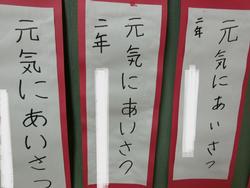 元気にあいさつ
二年
元気にあいさつ
二年
元気にあいさつ